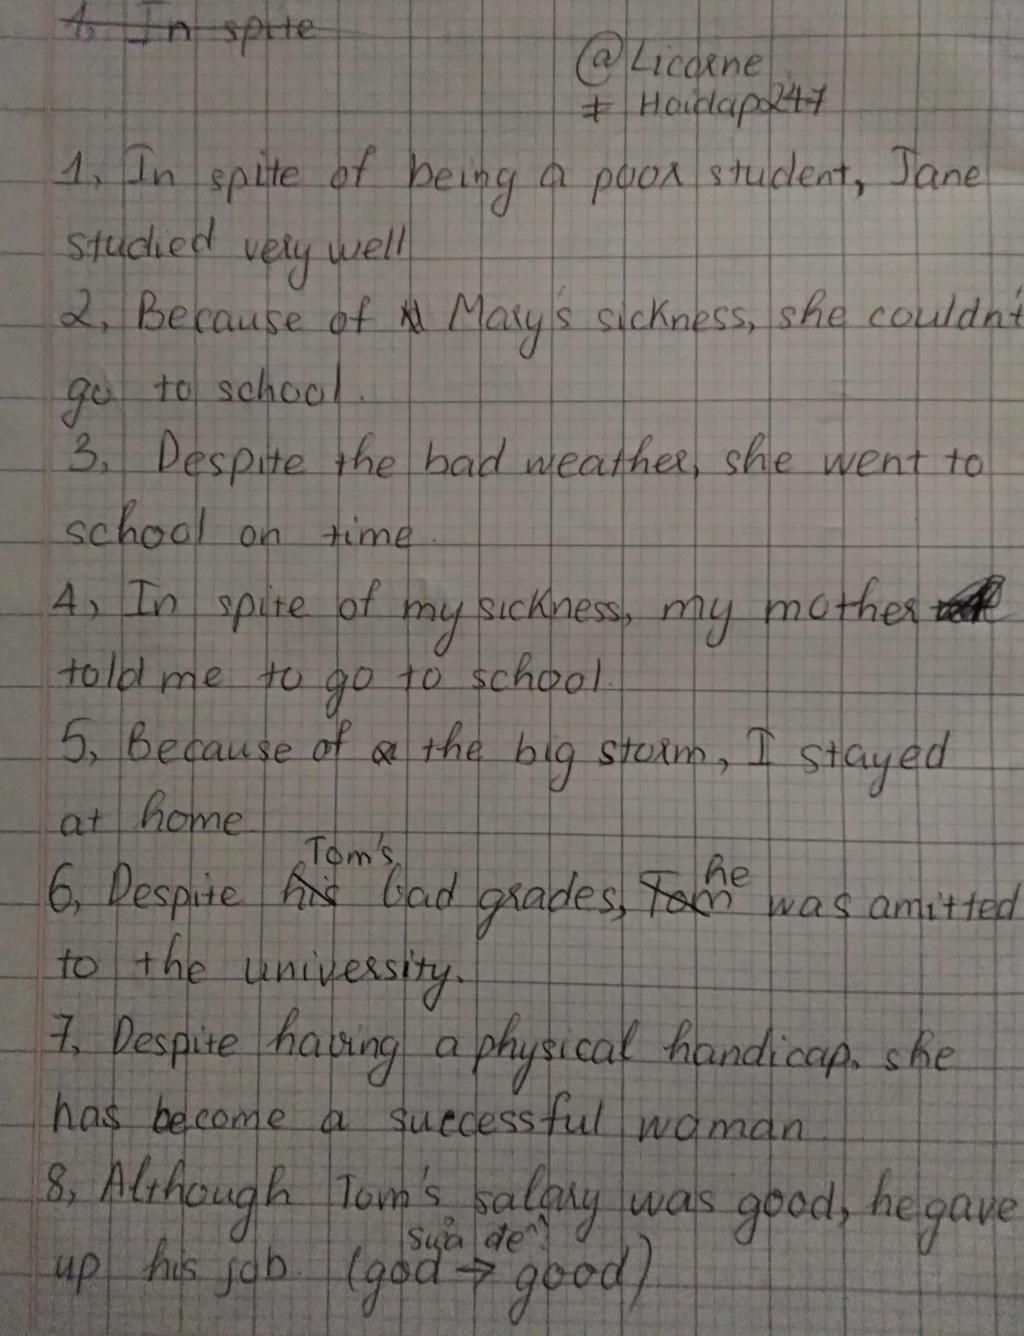 1. In spite
@Licorne
# Hoidap247
1, In spite of being a poor student, Jane
studied very well
2, Because of Mary's sickness, she couldn't
go to school.
3, Despite the bad weather, she went to
school on time.
4, In spite of my sickness, my mother
told me to go to school.
5, Because of the big storm, I stayed
at home
Tom's he
6, Despite his bad grades, Tom was amitted
to the university.
7, Despite having a physical handicap, she
has become a successful woman
8, Although Tom's salary was good, he gave
sửa đề
up his job (god → good)